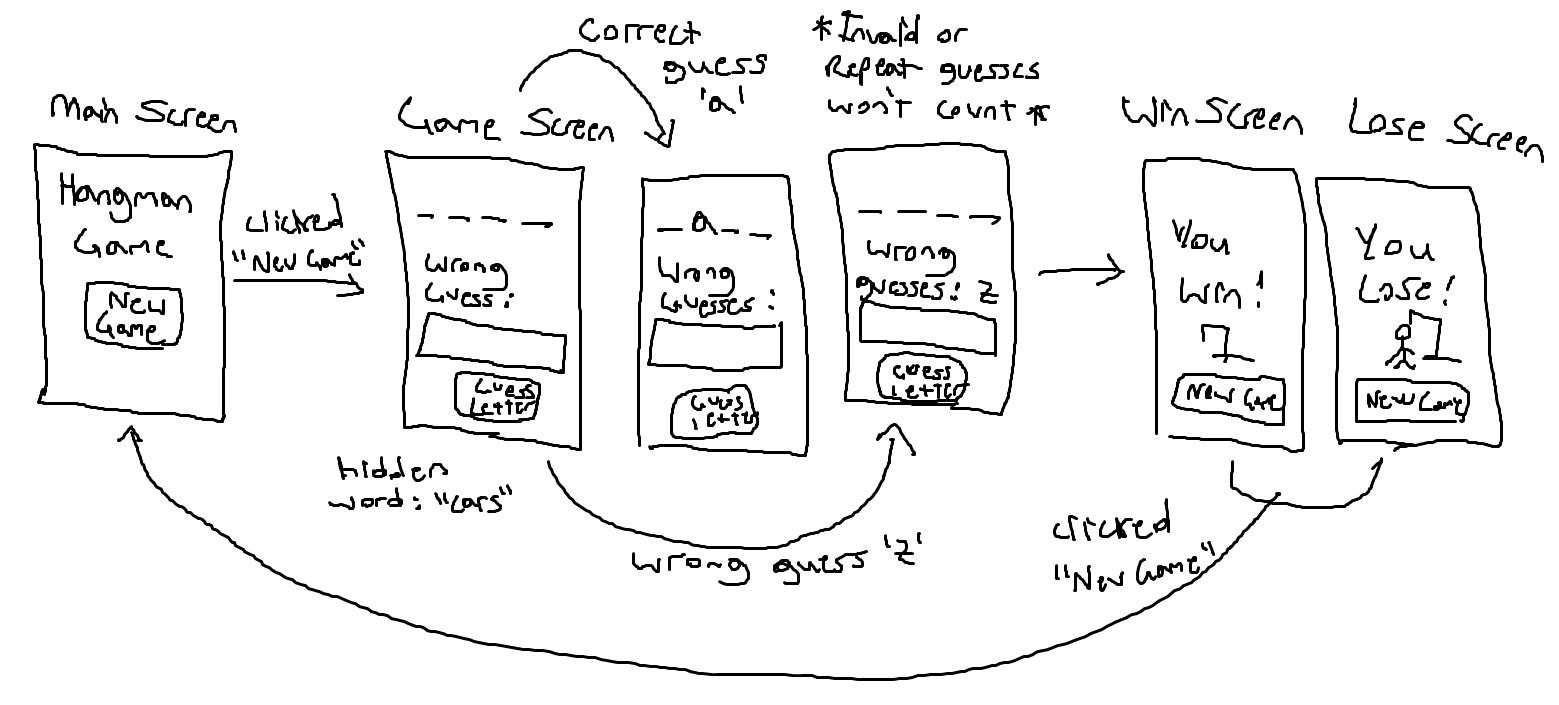 Main Screen
Hangman
Game
New
Game
clicked
"New Game"
Game Screen
_ _ _ _
Wrong
Guess:
Guess
Letter
hidden
word: "cars"
Correct
guess
'a'
_ a _ _
Wrong
Guesses:
Guess
Letter
*Invalid or
Repeat guesses
won't count*
_ _ _ _
Wrong
guesses: z
Guess
Letter
wrong guess 'z'
Win Screen
You
Win!
New Game
Lose Screen
You
Lose!
New Game
clicked
"New Game"